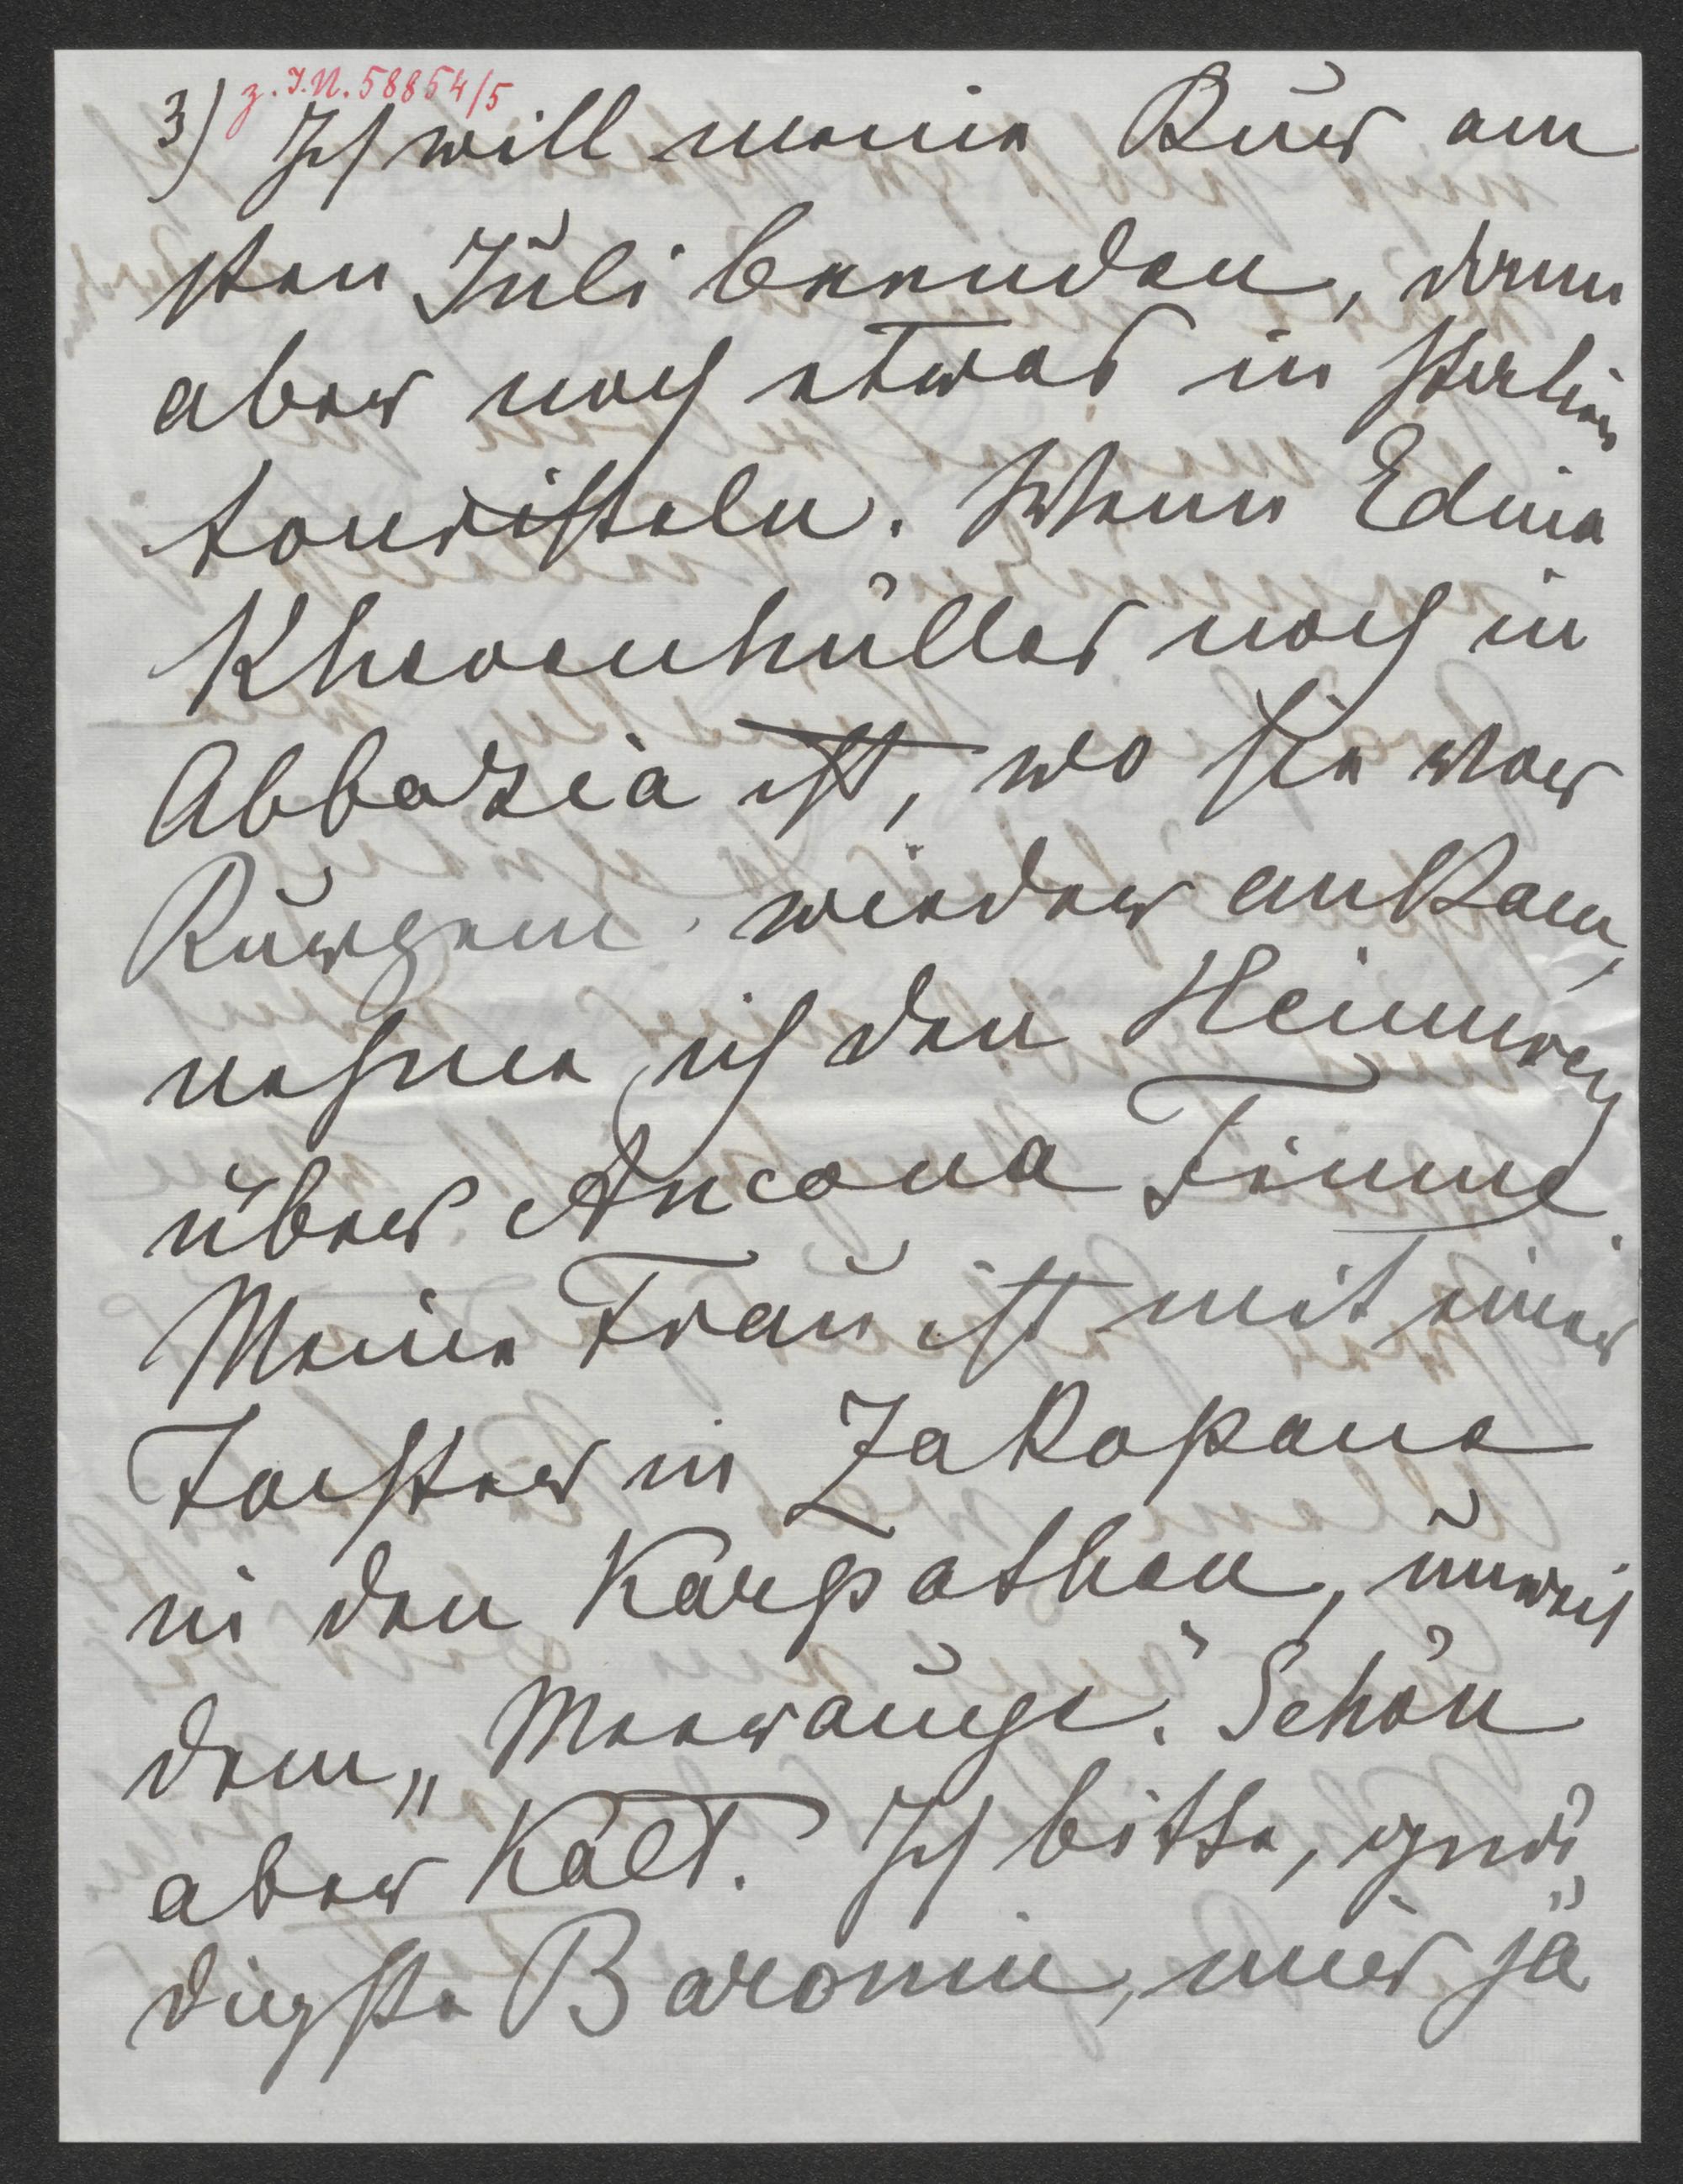 z. I.N. 58854/5
3) Ich will meine Kur am
sten Juli beenden, dann
aber noch etwas in Italien
touristeln. Wenn Edina
Khevenhüller noch in
Abbazia ist, wo sie vor
Kurzem wieder ankam,
nehme ich den Heimweg
über Ancona Fiume.
Meine Frau ist mit einer
Tochter in Zakopane
in den Karpathen, unweit
dem „Meerauge". Schön
aber kalt. Ich bitte, gnä-
digste Baronin, mir ja